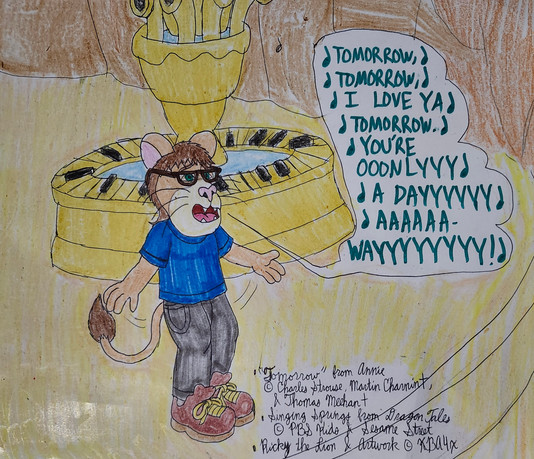 ♪TOMORROW,♪
♪TOMORROW,♪
♪I LOVE YA♪
♪TOMORROW.♪
♪YOU'RE
OOONLYYY♪
♪A DAYYYYYY♪
♪AAAAAA-
WAYYYYYYYYY!♪
• "Tomorrow" from Annie
© Charles Strouse, Martin Charnin†,
& Thomas Meehan†
• Singing Springs from Dragon Tales
© PBS Kids & Sesame Street
• Ricky the Lion & Artwork © KBA4x